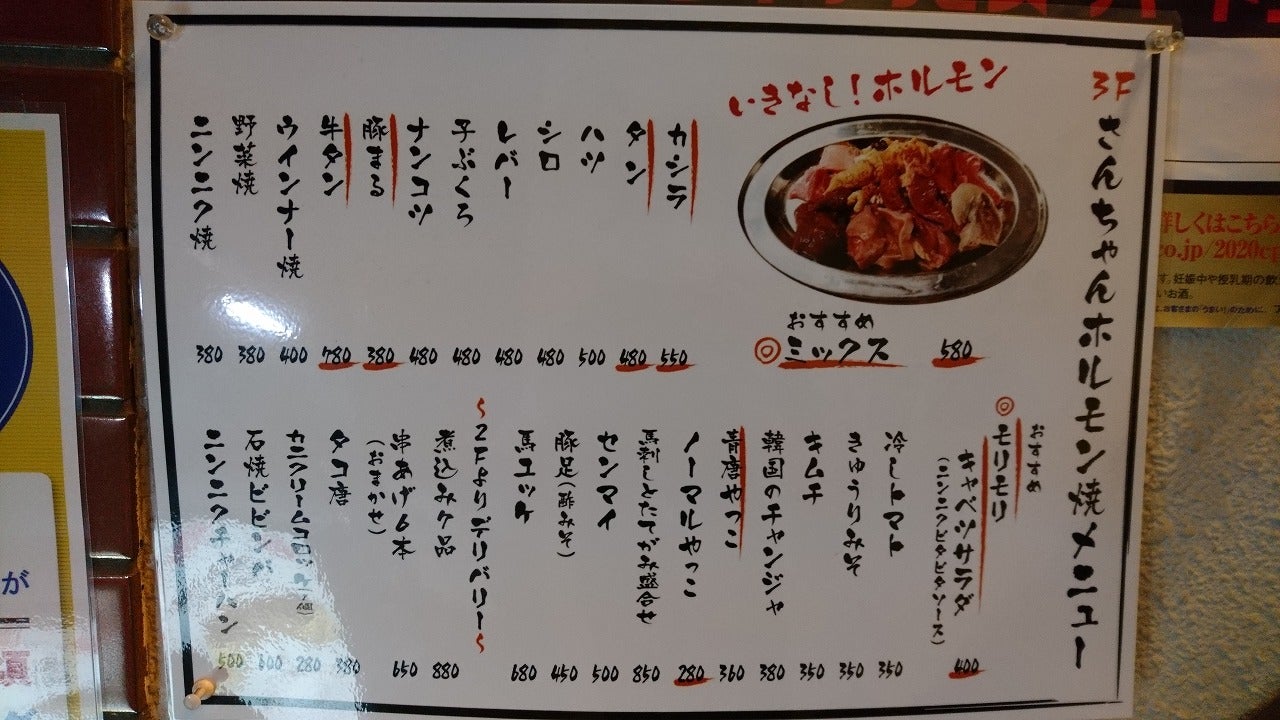 3F さんちゃんホルモン焼メニュー
いきなし!ホルモン
おすすめ
◎ミックス 580
カシラ 550
タン 480
ハツ 500
シロ 480
レバー 480
子ぶくろ 480
ナンコツ 480
豚まる 380
牛タン 780
ウインナー焼 400
野菜焼 380
ニンニク焼 380
おすすめ
◎モリモリ
キャベツサラダ 400
(ニンニクピタピタソース)
冷しトマト 350
きゅうりみそ 350
キムチ 350
韓国のチャンジャ 380
青唐やっこ 360
ノーマルやっこ 280
馬刺しとたてがみ盛合せ 850
センマイ 500
豚足(酢みそ) 450
馬ユッケ 680
~2Fよりデリバリー~
煮込みケ品 880
串あげ6本 650
(おまかせ)
タコ唐 380
カニクリームコロッケ 280
石焼ビビンバ 600
ニンニクチャーハン 500
詳しくはこちら
co.jp/2020cp
す。妊娠中や授乳期の飲
いお酒。
が